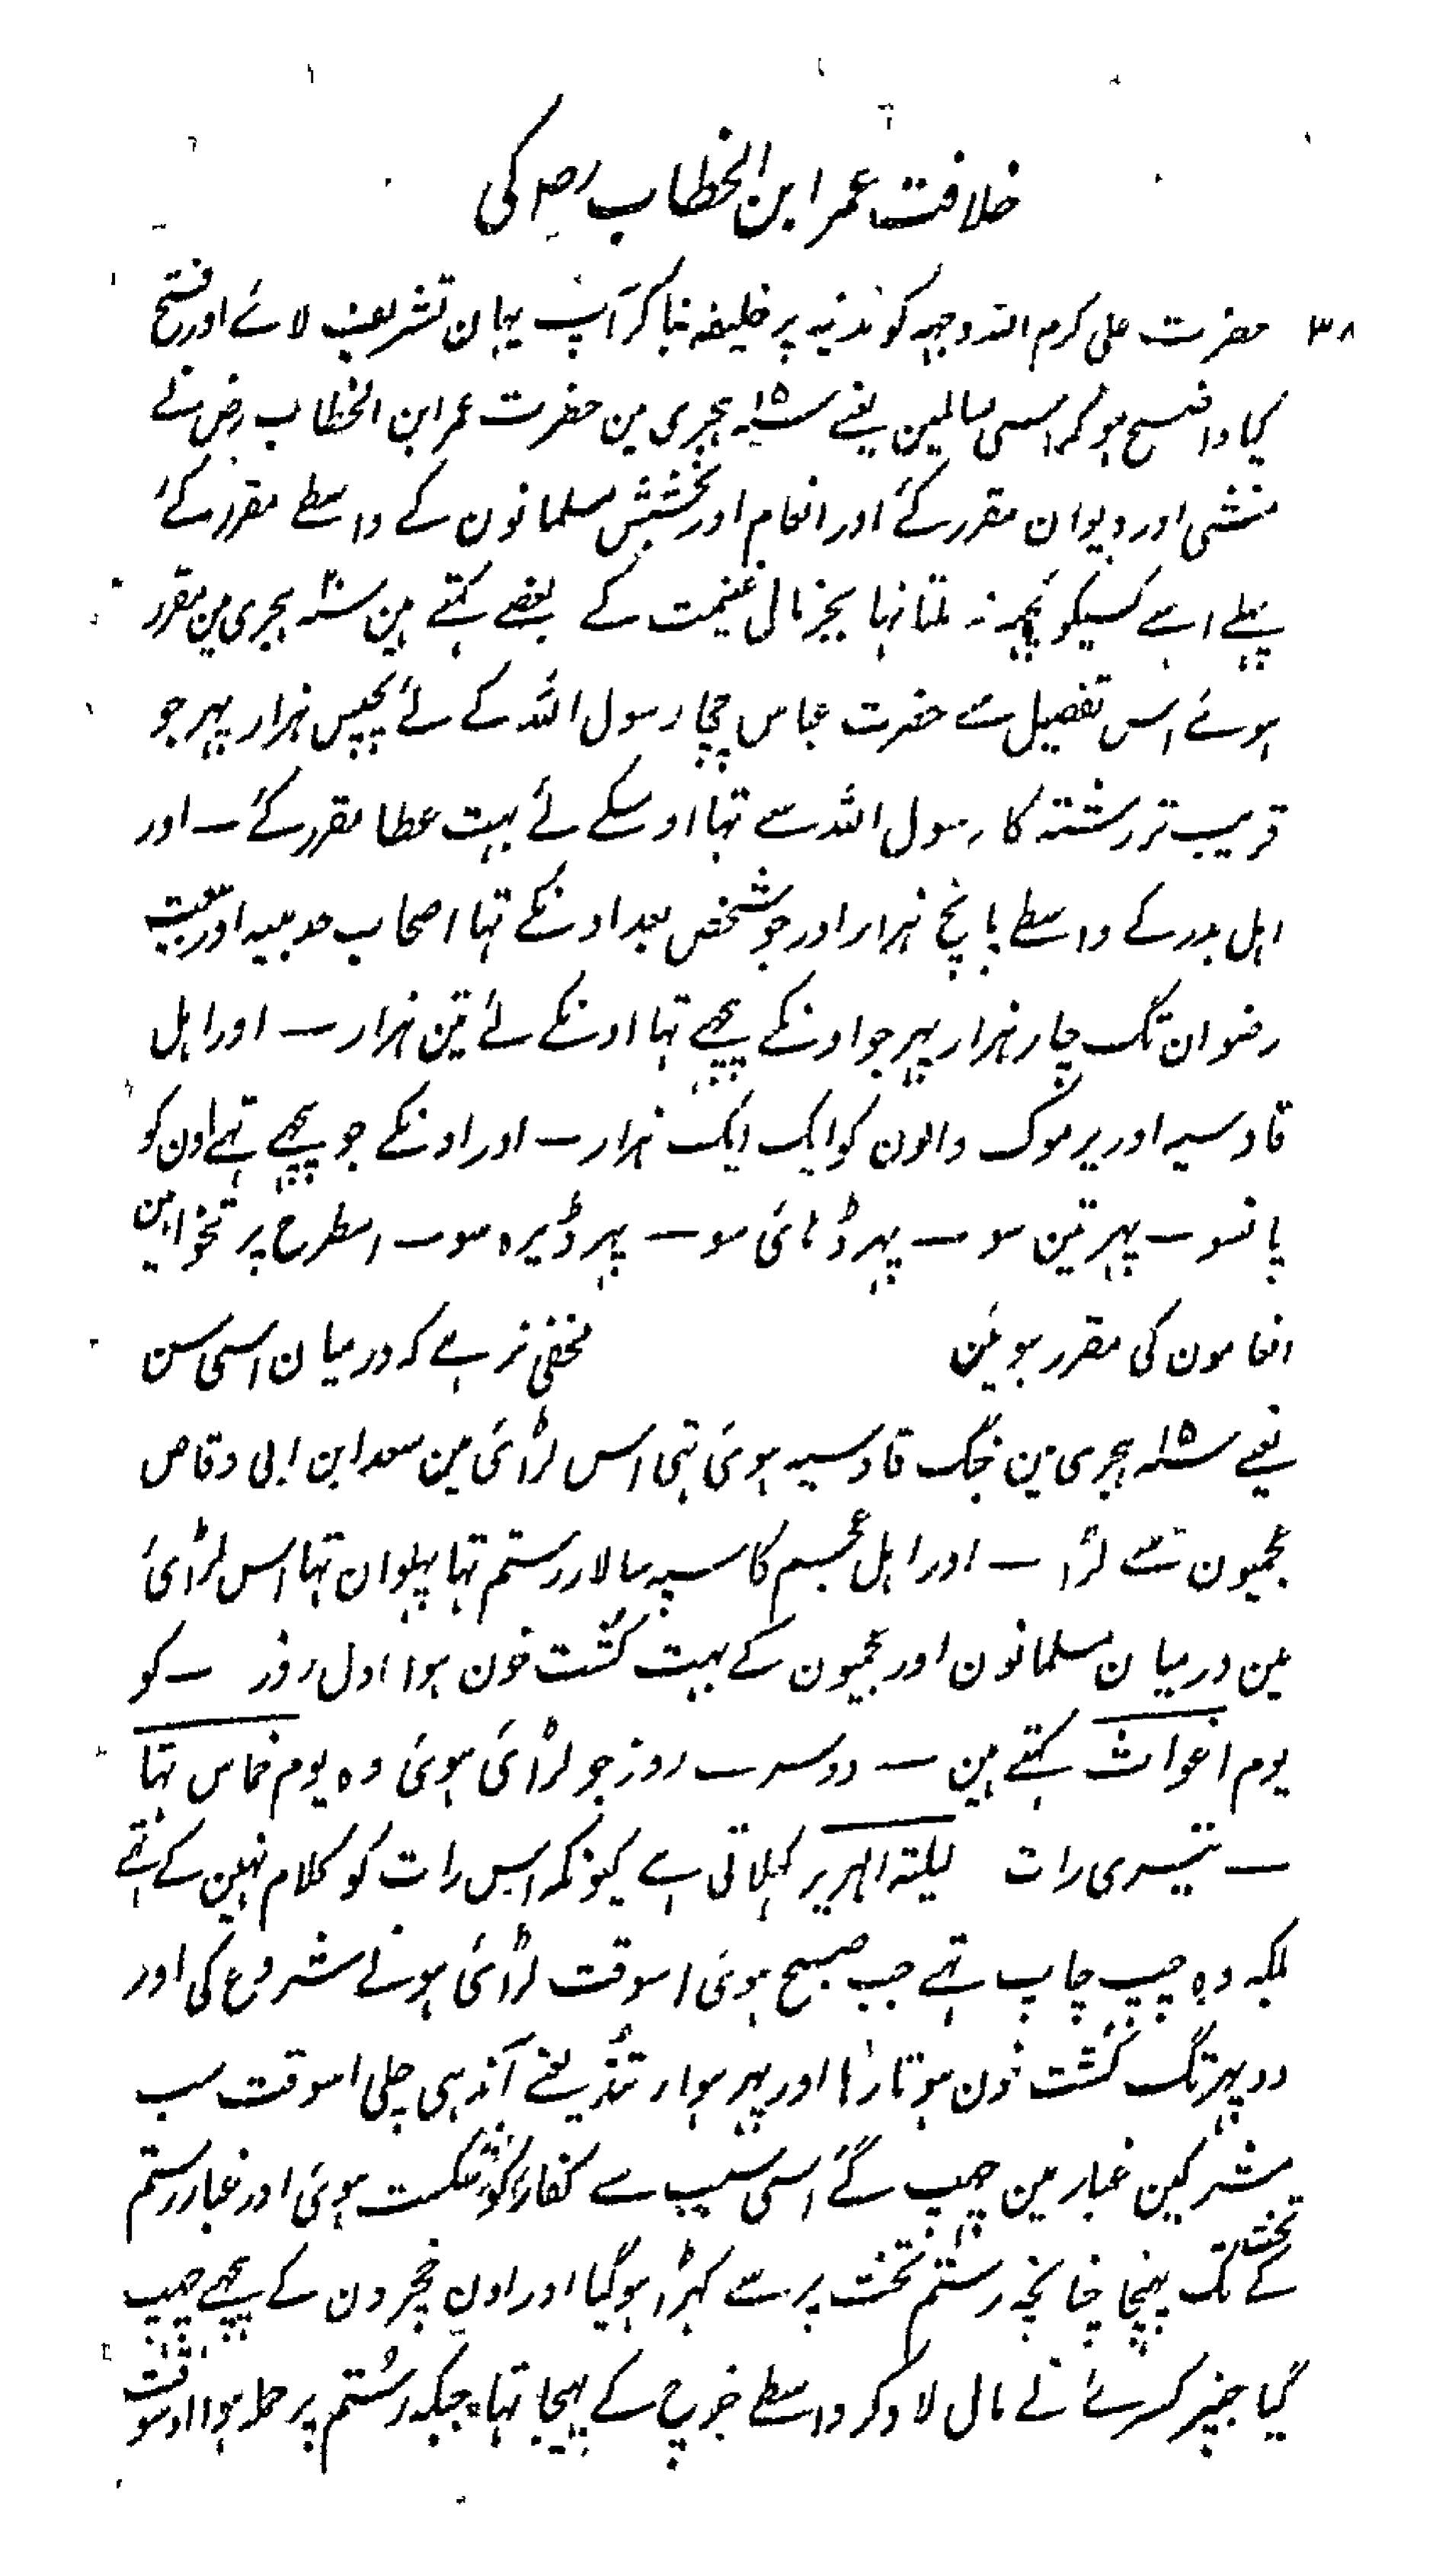 خلافت عمر ابن الخطاب رض کی
۳۸ حضرت علی کرم اللہ وجہہ کو مدینہ پر خلیفہ بنا کر آپ یہان تشریف لائے اور فتح
کیا واضح ہو کہ اسی سالمین یعنے سنہ ۱۵ ہجری مین حضرت عمر ابن الخطاب رض نے
منشی اور دیوان مقرر کئے اور انعام اور بخشش مسلمانون کے واسطے مقرر کئے
پہلے اسے کسیکو کچہہ نہ ملتا تہا بجز مال غنیمت کے بعضے کہتے ہین سنہ ۲۰ ہجری مین مقرر
ہوئے اس تفصیل سے حضرت عباس چچا رسول اللہ کے لئے پچیس ہزار پہر جو
قریب تر رشتہ کا رسول اللہ سے تہا اوسکے لئے بہت عطا مقرر کئے — اور
اہل بدر کے واسطے پانچ ہزار اور جو شخص بعد اونکے تہا اصحاب حدیبیہ اور بیعت
رضوان تک چار ہزار پہر جو اونکے پیچہے تہا اونکے لئے تین ہزار — اور اہل
قادسیہ اور یرموک والون کو ایک ایک ہزار — اور اونکے جو پیچہے تہے اون کو
پانسو — پہر تین سو — پہر ڈہائی سو — پہر ڈیرہ سو — اسطرح پر تنخواہین
انعامون کی مقرر ہوئین مخفی نرہے کہ درمیان اسی سن
یعنے سنہ ۱۵ ہجری مین جنگ قادسیہ ہوئی تہی اس لڑائی مین سعد ابن ابی وقاص
عجمیون سے لڑا — اور اہل عجم کا سپہ سالار رستم تہا پہلوان تہا اس لڑائی
مین درمیان مسلمانون اور عجمیون کے بہت کشت خون ہوا اول روز — کو
یوم اغواث کہتے ہین — دوسرے روز جو لڑائی ہوئی وہ یوم خماس تہا
— تیسری رات لیلتہ الہریر کہلاتی ہے کیونکہ اس رات کو کلام نہین کے تہے
بلکہ وہ چپ چاپ تہے جب صبح ہوئی اسوقت لڑائی ہونے شروع کی اور
دوپہر تک کشت خون ہوتا رہا اور پہر ہوار تند یعنے آندہی چلی اسوقت سب
مشرکین غبار مین چہپ گئے اسی سبب سے کفار کو شکست ہوئی اور غبار رستم
کے تخت تک پہنچا چنانچہ رستم تخت پر سے کہڑا ہو گیا اور اون خچرون کے پیچہے چہپ
گیا جنپر کسرے نے مال لاد کر واسطے خرچ کے بہیجا تہا جبکہ رستم پر حملہ ہوا اوسوقت